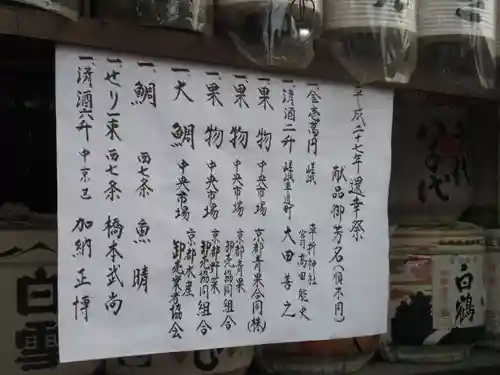 平成二十七年還幸祭
献品御芳名(順不同)
一、金壱萬円 嵯峨 車折神社 宮司 高田能史
一、清酒二升 嵯峨 大田善之
一、果物 中央市場 京都青果合同(株)
一、果物 中央市場 京都青果 卸売協同組合
一、果物 中央市場 京都野菜 卸売協同組合
一、大鯛 中央市場 京都水産 卸売業者協会
一、鯛 西七条 魚晴
一、せり一束 西七条 橋本武尚
一、清酒六升 中京区 加納正博
白雪
白鶴